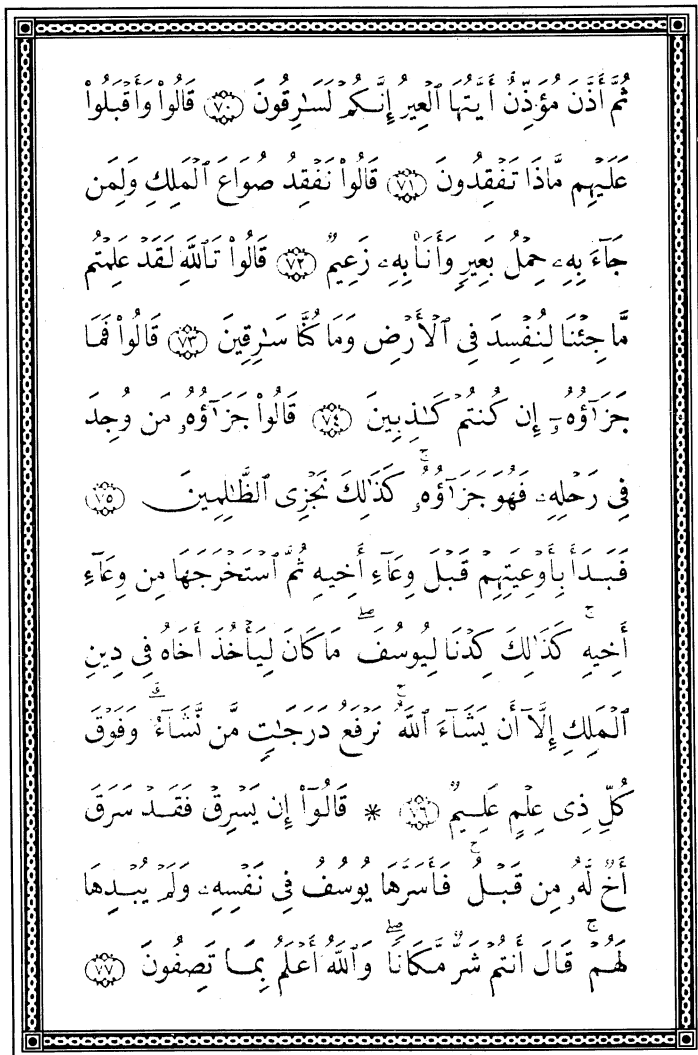 ثُمَّ أَذَّنَ مُؤَذِّنٌ أَيَّتُهَا ٱلْعِيرُ إِنَّكُمْ لَسَـٰرِقُونَ ﴿٧٠﴾ قَالُوا۟ وَأَقْبَلُوا۟
عَلَيْهِم مَّاذَا تَفْقِدُونَ ﴿٧١﴾ قَالُوا۟ نَفْقِدُ صُوَاعَ ٱلْمَلِكِ وَلِمَن
جَآءَ بِهِۦ حِمْلُ بَعِيرٍ وَأَنَا۠ بِهِۦ زَعِيمٌ ﴿٧٢﴾ قَالُوا۟ تَٱللَّهِ لَقَدْ عَلِمْتُم
مَّا جِئْنَا لِنُفْسِدَ فِى ٱلْأَرْضِ وَمَا كُنَّا سَـٰرِقِينَ ﴿٧٣﴾ قَالُوا۟ فَمَا
جَزَـٰٓؤُهُۥٓ إِن كُنتُمْ كَـٰذِبِينَ ﴿٧٤﴾ قَالُوا۟ جَزَـٰٓؤُهُۥ مَن وُجِدَ
فِى رَحْلِهِۦ فَهُوَ جَزَـٰٓؤُهُۥ ۚ كَذَٰلِكَ نَجْزِى ٱلظَّـٰلِمِينَ ﴿٧٥﴾
فَبَدَأَ بِأَوْعِيَتِهِمْ قَبْلَ وِعَآءِ أَخِيهِ ثُمَّ ٱسْتَخْرَجَهَا مِن وِعَآءِ
أَخِيهِ ۚ كَذَٰلِكَ كِدْنَا لِيُوسُفَ ۖ مَا كَانَ لِيَأْخُذَ أَخَاهُ فِى دِينِ
ٱلْمَلِكِ إِلَّآ أَن يَشَآءَ ٱللَّهُ ۚ نَرْفَعُ دَرَجَـٰتٍ مَّن نَّشَآءُ ۗ وَفَوْقَ
كُلِّ ذِى عِلْمٍ عَلِيمٌ ﴿٧٦﴾ * قَالُوٓا۟ إِن يَسْرِقْ فَقَدْ سَرَقَ
أَخٌ لَّهُۥ مِن قَبْلُ ۚ فَأَسَرَّهَا يُوسُفُ فِى نَفْسِهِۦ وَلَمْ يُبْدِهَا
لَهُمْ ۚ قَالَ أَنتُمْ شَرٌّ مَّكَانًا ۖ وَٱللَّهُ أَعْلَمُ بِمَا تَصِفُونَ ﴿٧٧﴾